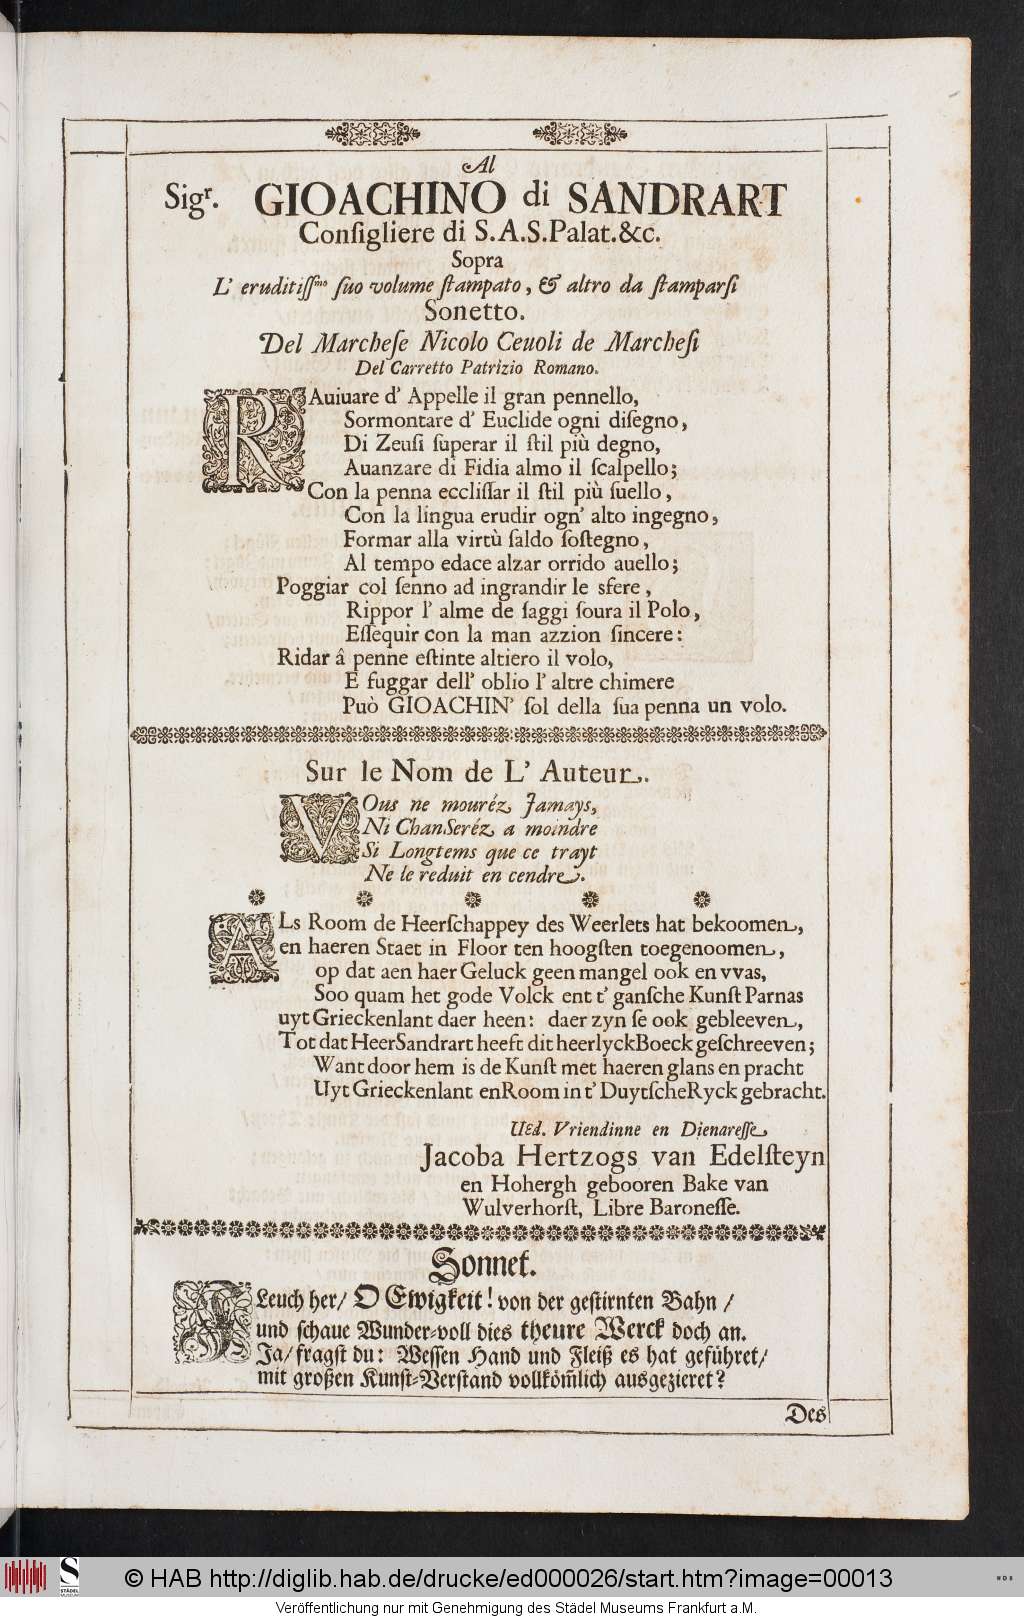 Al
Sigr. GIOACHINO di SANDRART
Conſigliere di S.A.S.Palat.&c.
Sopra
L' eruditiſſmo ſuo volume ſtampato, & altro da ſtamparſi
Sonetto.
Del Marcheſe Nicolo Ceuoli de Marcheſi
Del Carretto Patrizio Romano.
RAuiuare d' Appelle il gran pennello,
Sormontare d' Euclide ogni diſegno,
Di Zeuſi ſuperar il ſtil più degno,
Auanzare di Fidia almo il ſcalpello;
Con la penna eccliſſar il ſtil più ſuello,
Con la lingua erudir ogn' alto ingegno,
Formar alla virtù ſaldo ſoſtegno,
Al tempo edace alzar orrido auello;
Poggiar col ſenno ad ingrandir le sfere,
Rippor l' alme de ſaggi ſoura il Polo,
Eſſequir con la man azzion ſincere:
Ridar â penne eſtinte altiero il volo,
E fuggar dell' oblio l' altre chimere
Può GIOACHIN' ſol della ſua penna un volo.
Sur le Nom de L' Auteur.
VOus ne mouréz Jamays,
Ni ChanSeréz a moindre
Si Longtems que ce trayt
Ne le reduit en cendre.
ALs Room de Heerſchappey des Weerlets hat bekoomen,
en haeren Staet in Floor ten hoogſten toegenoomen,
op dat aen haer Geluck geen mangel ook en vvas,
Soo quam het gode Volck ent t' ganſche Kunſt Parnas
uyt Grieckenlant daer heen: daer zyn ſe ook gebleeven,
Tot dat HeerSandrart heeft dit heerlyckBoeck geſchreeven;
Want door hem is de Kunſt met haeren glans en pracht
Uyt Grieckenlant enRoom in t' DuytſcheRyck gebracht.
Ued. Vriendinne en Dienareſſe
Jacoba Hertzogs van Edelſteyn
en Hohergh gebooren Bake van
Wulverhorſt, Libre Baroneſſe.
Sonnet.
FLeuch her/ O Ewigkeit! von der geſtirnten Bahn /
und ſchaue Wunder-voll dies theure Werck doch an.
Ja/ fragſt du: Weſſen Hand und Fleiß es hat geführet/
mit großen Kunſt-Verſtand vollkom̃lich ausgezieret?
Des
© HAB http://diglib.hab.de/drucke/ed000026/start.htm?image=00013
Veröffentlichung nur mit Genehmigung des Städel Museums Frankfurt a.M.